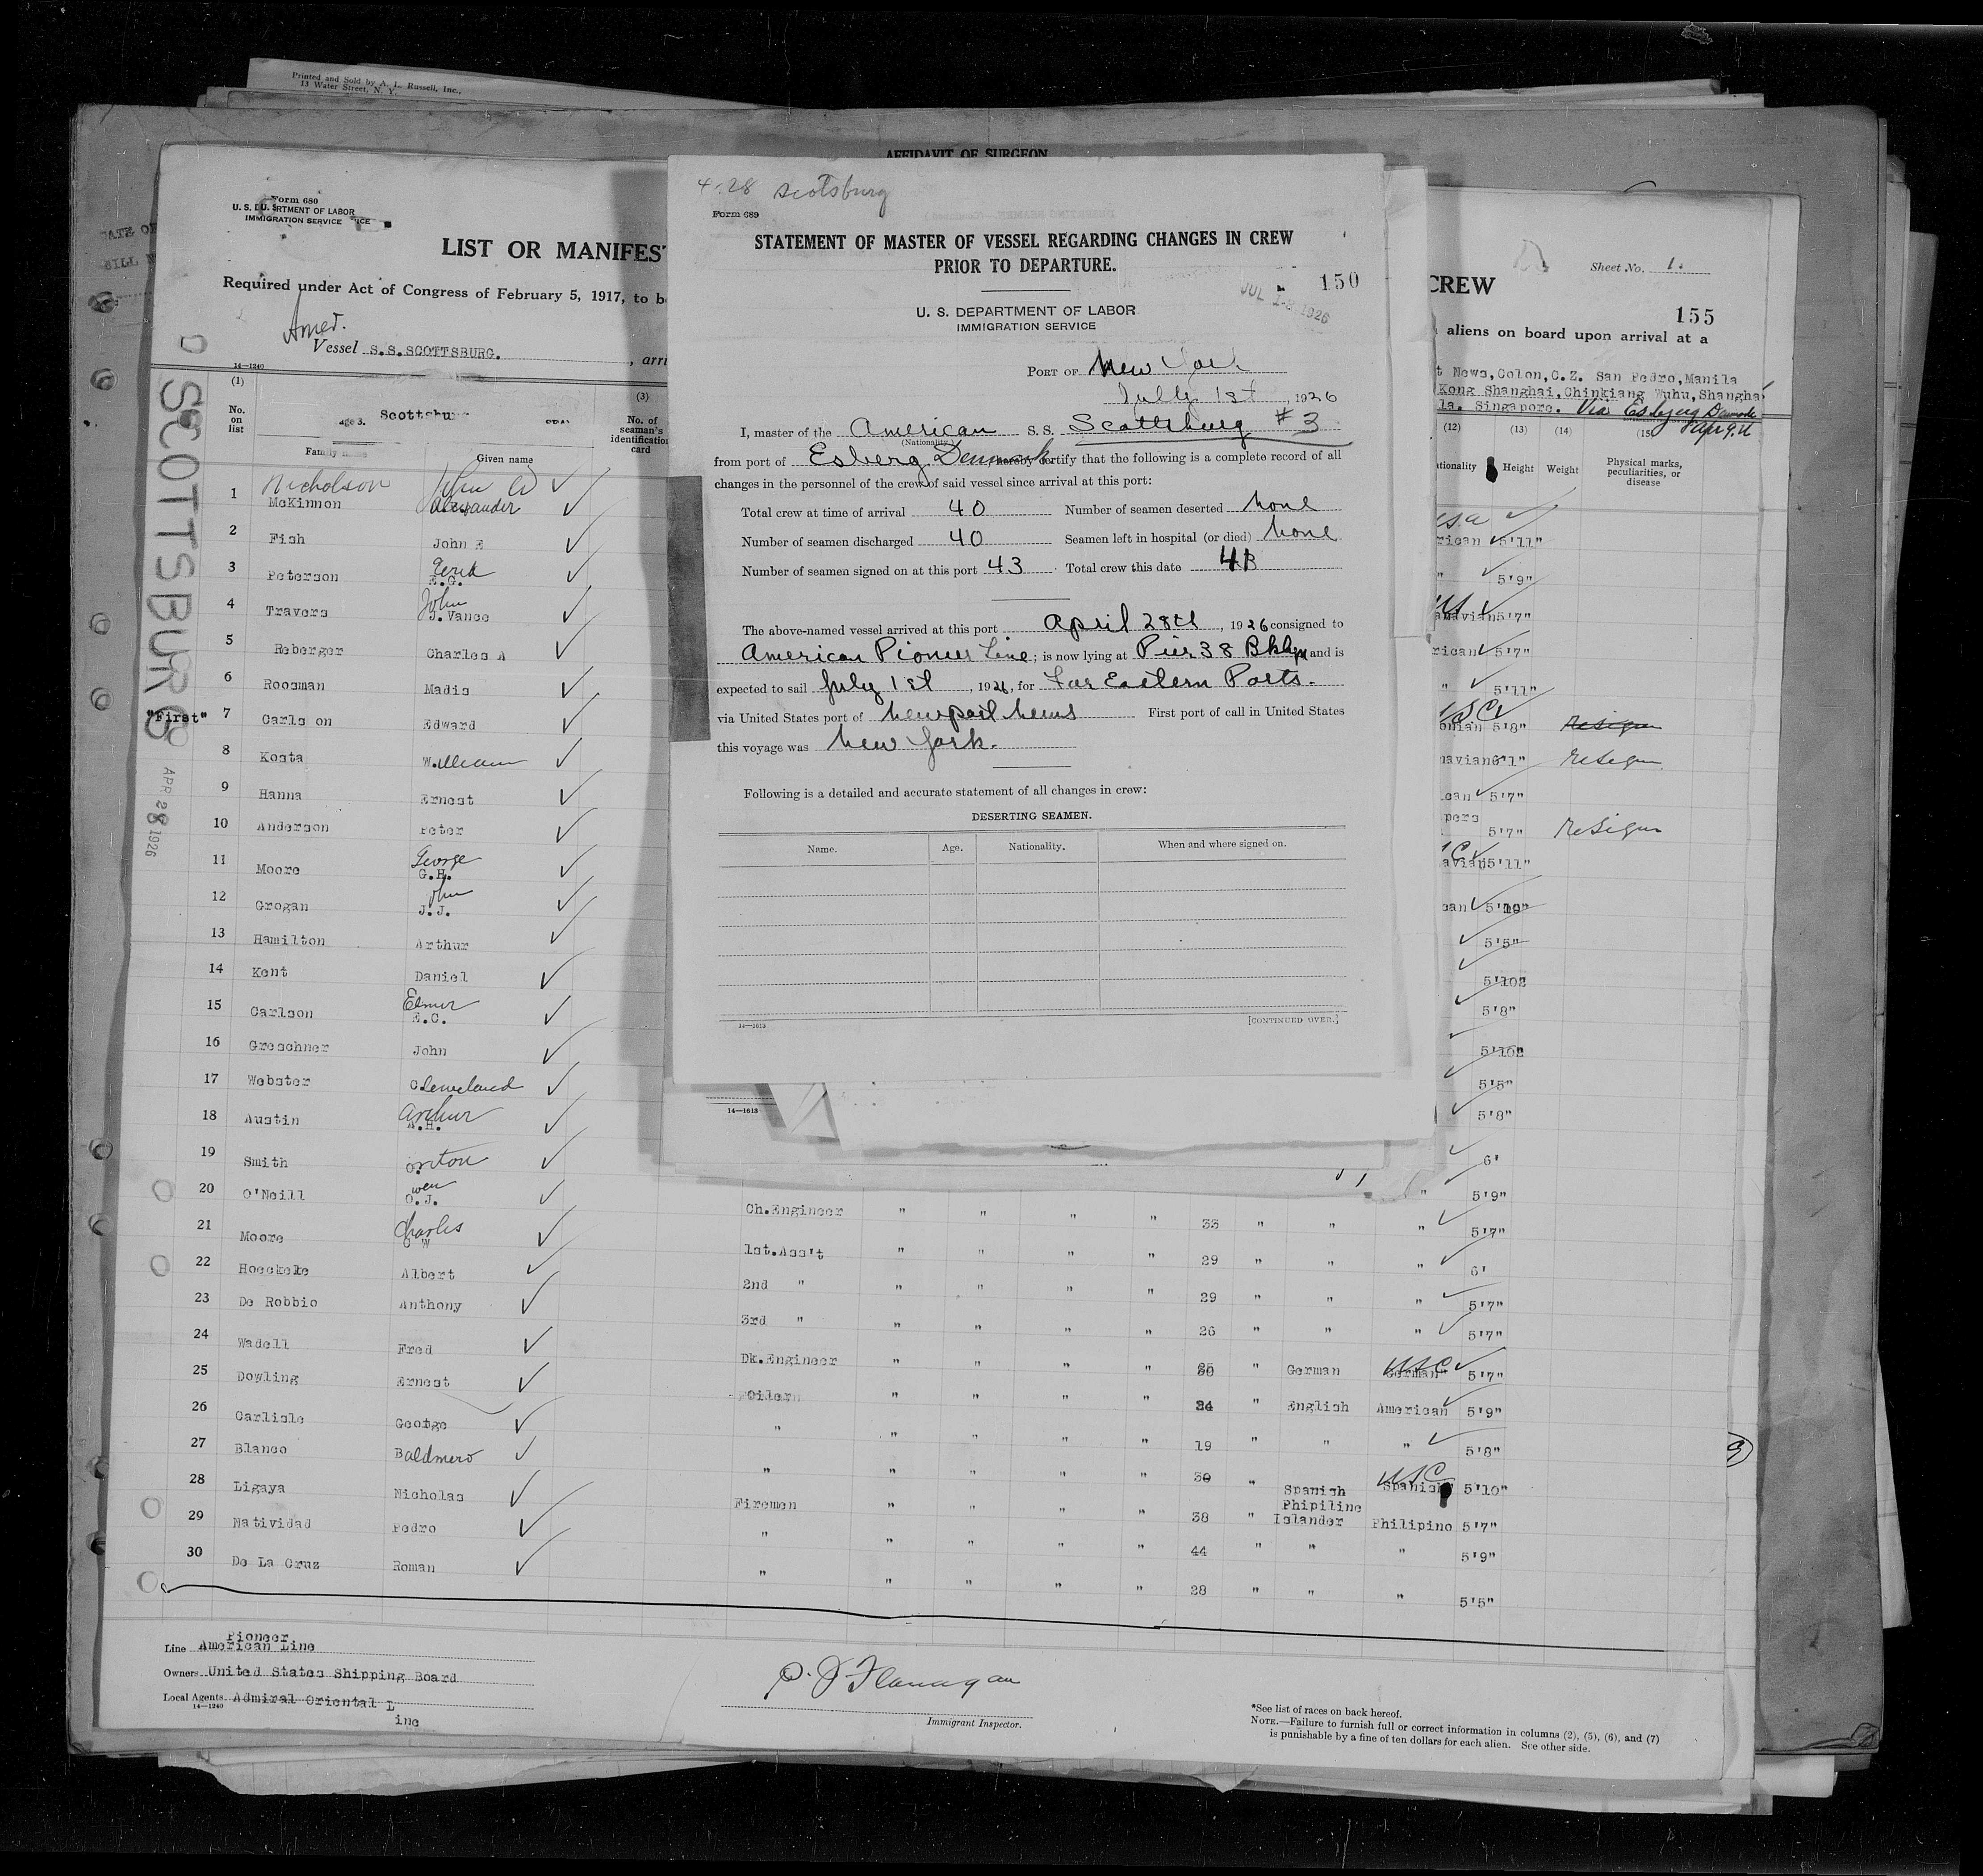 Printed and Sold by A. L. Russell, Inc.,
13 Water Street, N. Y.
AFFIDAVIT OF SURGEON
Form 680
U. S. DEPARTMENT OF LABOR
IMMIGRATION SERVICE
LIST OR MANIFES
Required under Act of Congress of February 5, 1917, to b
Amer.
Vessel S.S.SCOTTSBURG. , arri
14—1240
SCOTTSBURG
APR 28 1926
(1) (3)
No. on list
Scottsbur
Family name Given name
No. of seaman's identification card
Nicholson John W
1 McKinnon Alexander
2 Fish John E
3 Peterson Gerid E.G.
4 Travers John J.Vance
5 Reberger Charles A
6 Roosman Madis
"First" 7 Carlson Edward
8 Kosta William
9 Hanna Ernest
10 Anderson Peter
11 Moore George G.H.
12 Grogan John J.J.
13 Hamilton Arthur
14 Kent Daniel
15 Carlson Elmer E.C.
16 Greschner John
17 Webster Cleveland
18 Austin Arthur A.H.
19 Smith Orton
20 O'Neill Owen O.J.
21 Moore Charles C W
22 Hoeckele Albert
23 De Robbio Anthony
24 Wadell Fred
25 Dowling Ernest
26 Carlisle George
27 Blanco Baldmero
28 Ligaya Nicholas
29 Natividad Pedro
30 De La Cruz Roman
4.28 Scotsburg
Form 689
STATEMENT OF MASTER OF VESSEL REGARDING CHANGES IN CREW
PRIOR TO DEPARTURE.
150
JUL 1-8 1926
U. S. DEPARTMENT OF LABOR
IMMIGRATION SERVICE
PORT OF New York
July 1st , 1926
I, master of the American S. S. Scottsburg #3
(Nationality)
from port of Esberg Denmark hereby certify that the following is a complete record of all
changes in the personnel of the crew of said vessel since arrival at this port:
Total crew at time of arrival 40 Number of seamen deserted none
Number of seamen discharged 40 Seamen left in hospital (or died) none
Number of seamen signed on at this port 43 Total crew this date 43
The above-named vessel arrived at this port April 28th , 1926 consigned to
American Pioneer Line; is now lying at Pier 38 Bklyn and is
expected to sail July 1st , 1926, for Far Eastern Ports.
via United States port of Newport News First port of call in United States
this voyage was New York.
Following is a detailed and accurate statement of all changes in crew:
DESERTING SEAMEN.
Name. Age. Nationality. When and where signed on.
14—1613 [CONTINUED OVER.]
14—1613
Sheet No. 1.
CREW
155
aliens on board upon arrival at a
t News,Colon,C.Z. San Pedro,Manila
Kong Shanghai,Chinkiang Wuhu,Shangha
la. Singapore. Via Esbjerg Denmark
(12) (13) (14) (15)
Height Weight Physical marks, peculiarities, or disease
rican 5'11"
" 5'9"
navian 5'7"
rican 5'7"
" 5'11"
onian 5'8" Resign
navian 6'1" Resign
can 5'7"
pers
5'7" Resign
avian 5'11"
can 5'10"
5'5"
5'10½
5'8"
5'10½
5'5"
5'8"
6'
" 5'9"
Ch.Engineer " " " " 33 " " " 5'7"
1st.Ass't " " " " 29 " " " 6'
2nd " " " " " 29 " " " 5'7"
3rd " " " " " 26 " " " 5'7"
Dk.Engineer " " " " " German USC German 5'7"
Oiler " " " " 24 " English American 5'9"
" " " " " 19 " " " 5'8"
" " " " " 30 " Spanish USC Spanish 5'10"
Firemen " " " " 38 " Phipiline Islander Philipino 5'7"
" " " " " 44 " " " 5'9"
" " " " " 28 " " " 5'5"
Pioneer
Line American Line
Owners United States Shipping Board
Local Agents Admiral Oriental L
ine
14—1240
P. J Flanagan
Immigrant Inspector.
*See list of races on back hereof.
NOTE.—Failure to furnish full or correct information in columns (2), (5), (6), and (7)
is punishable by a fine of ten dollars for each alien. See other side.